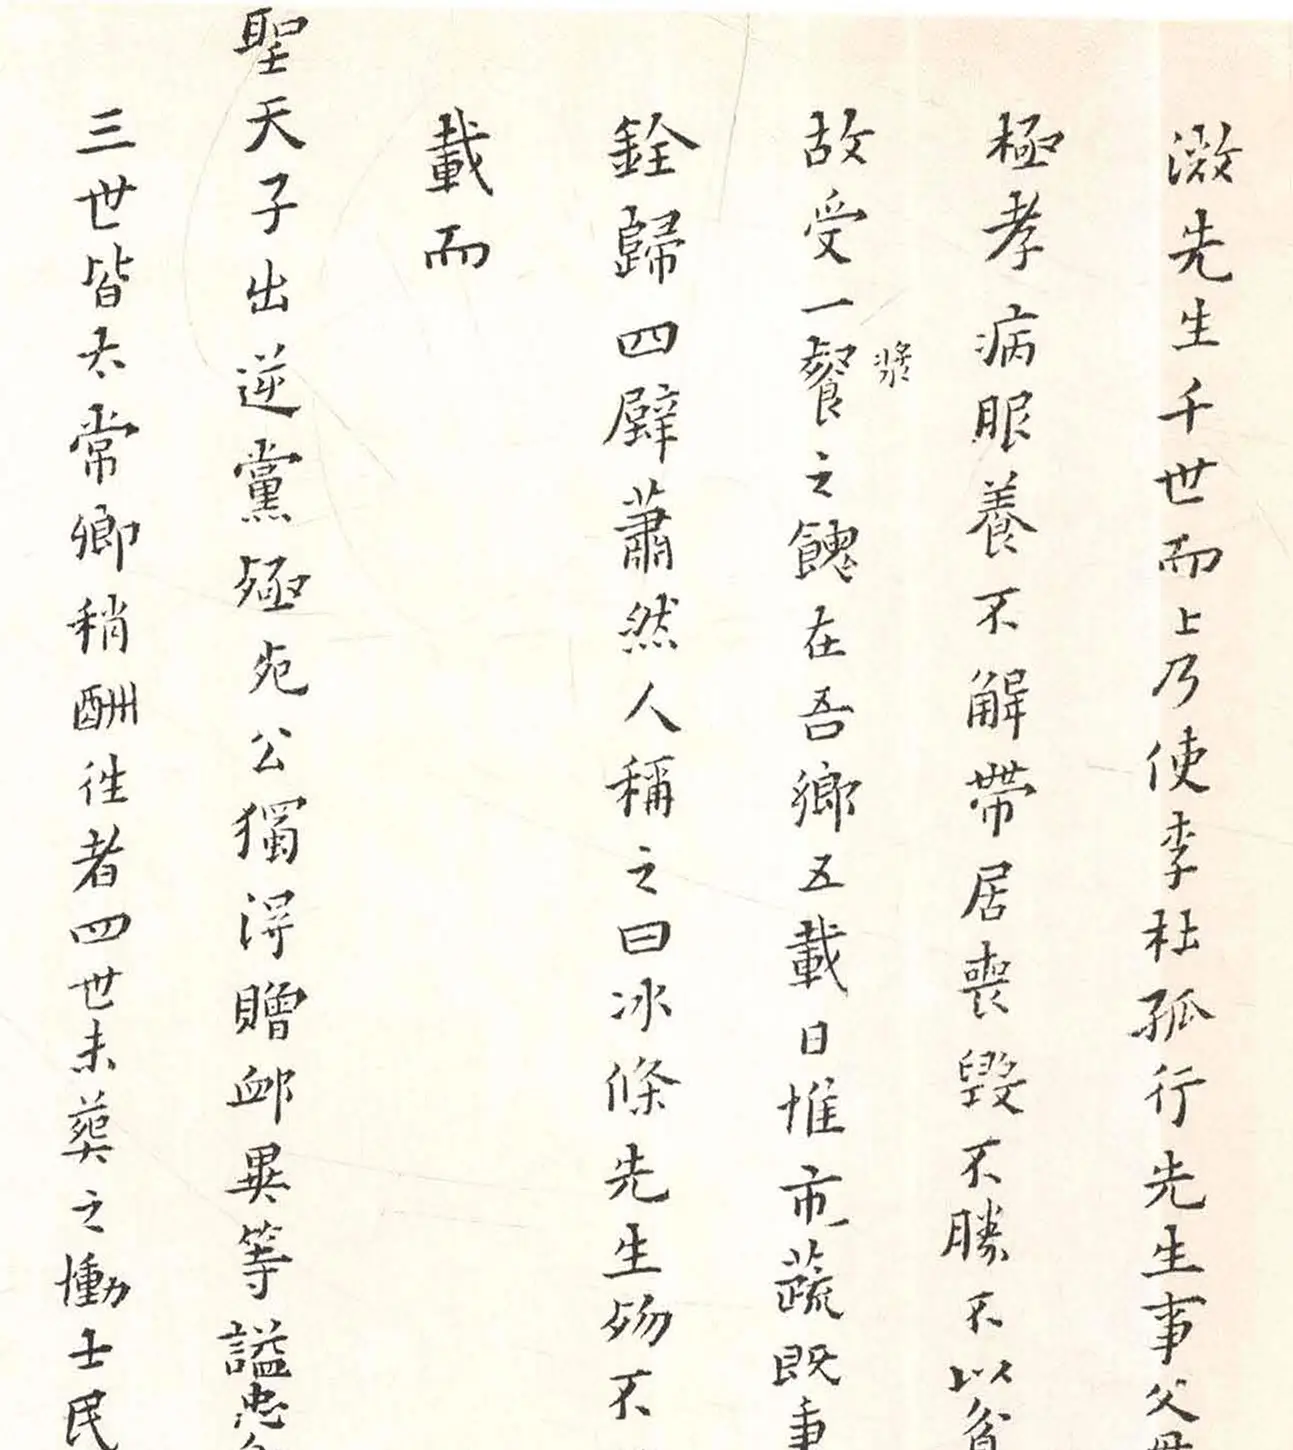 激先生千世而上乃使李杜孤行先生事父母
極孝病眼養不解帶居喪毀不勝不以貧
故受一餐之餽在吾鄉五載日惟市蔬既事
漿
銓歸四壁蕭然人稱之曰冰條先生歾不
載而
聖天子出逆黨殛死公獨淂贈卹異等謚忠
三世皆太常卿稍酬往者四世未葬之慟士民